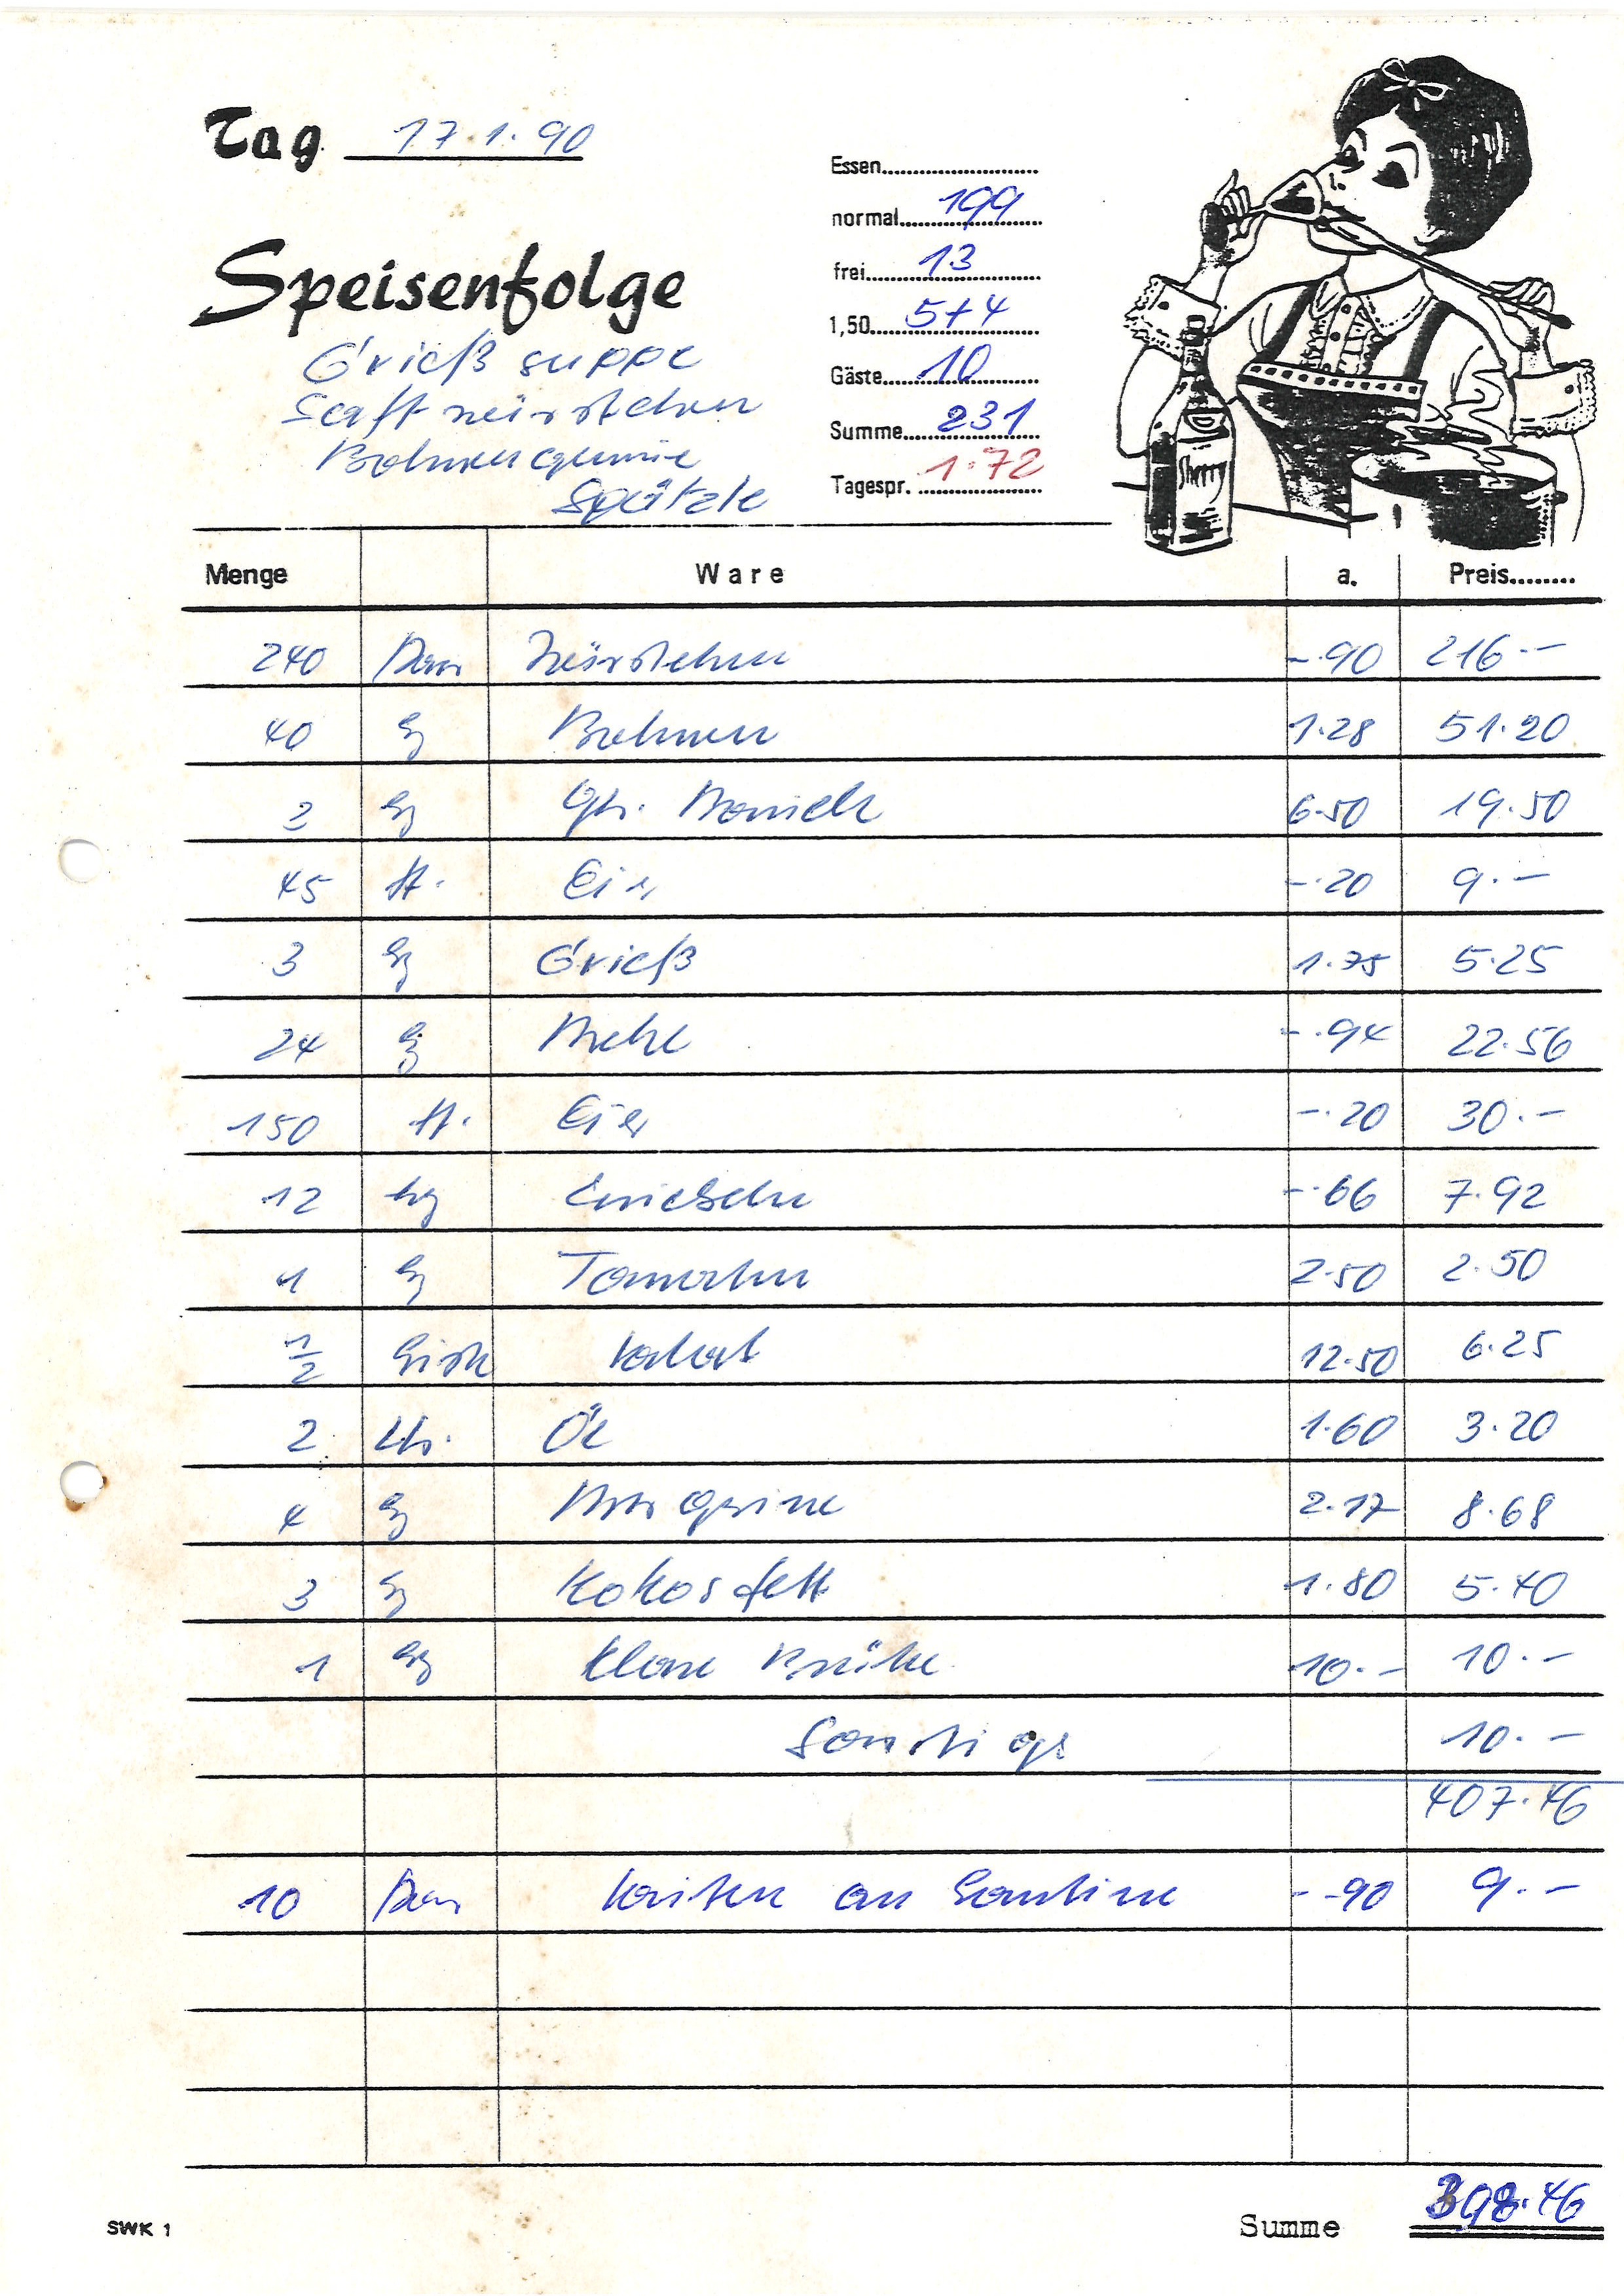 Tag 17.1.90
Essen
normal 199
frei 13
1,50 5+4
Gäste 10
Summe 231
Tagespr. 1.72
Speisenfolge
Grieß suppe
Saft würstchen
Bohnengemüse
Spätzle
Sherry
Menge Ware a. Preis
240 Paar Würstchen -.90 216.-
40 kg Bohnen 1.28 51.20
3 kg 6.50 19.50
45 St. Eier -.20 9.-
3 kg Grieß 1.75 5.25
24 kg Mehl -.94 22.56
150 St. Eier -.20 30.-
12 kg Zwiebeln -.66 7.92
1 kg Tomaten 2.50 2.50
1/2 12.50 6.25
2 Ltr. Öl 1.60 3.20
4 kg Margarine 2.17 8.68
3 kg Kokosfett 1.80 5.40
1 kg klare Brühe 10.- 10.-
Sonstige 10.-
407.46
10 Paar Saiten an Kantine -.90 9.-
SWK 1
Summe 398.46